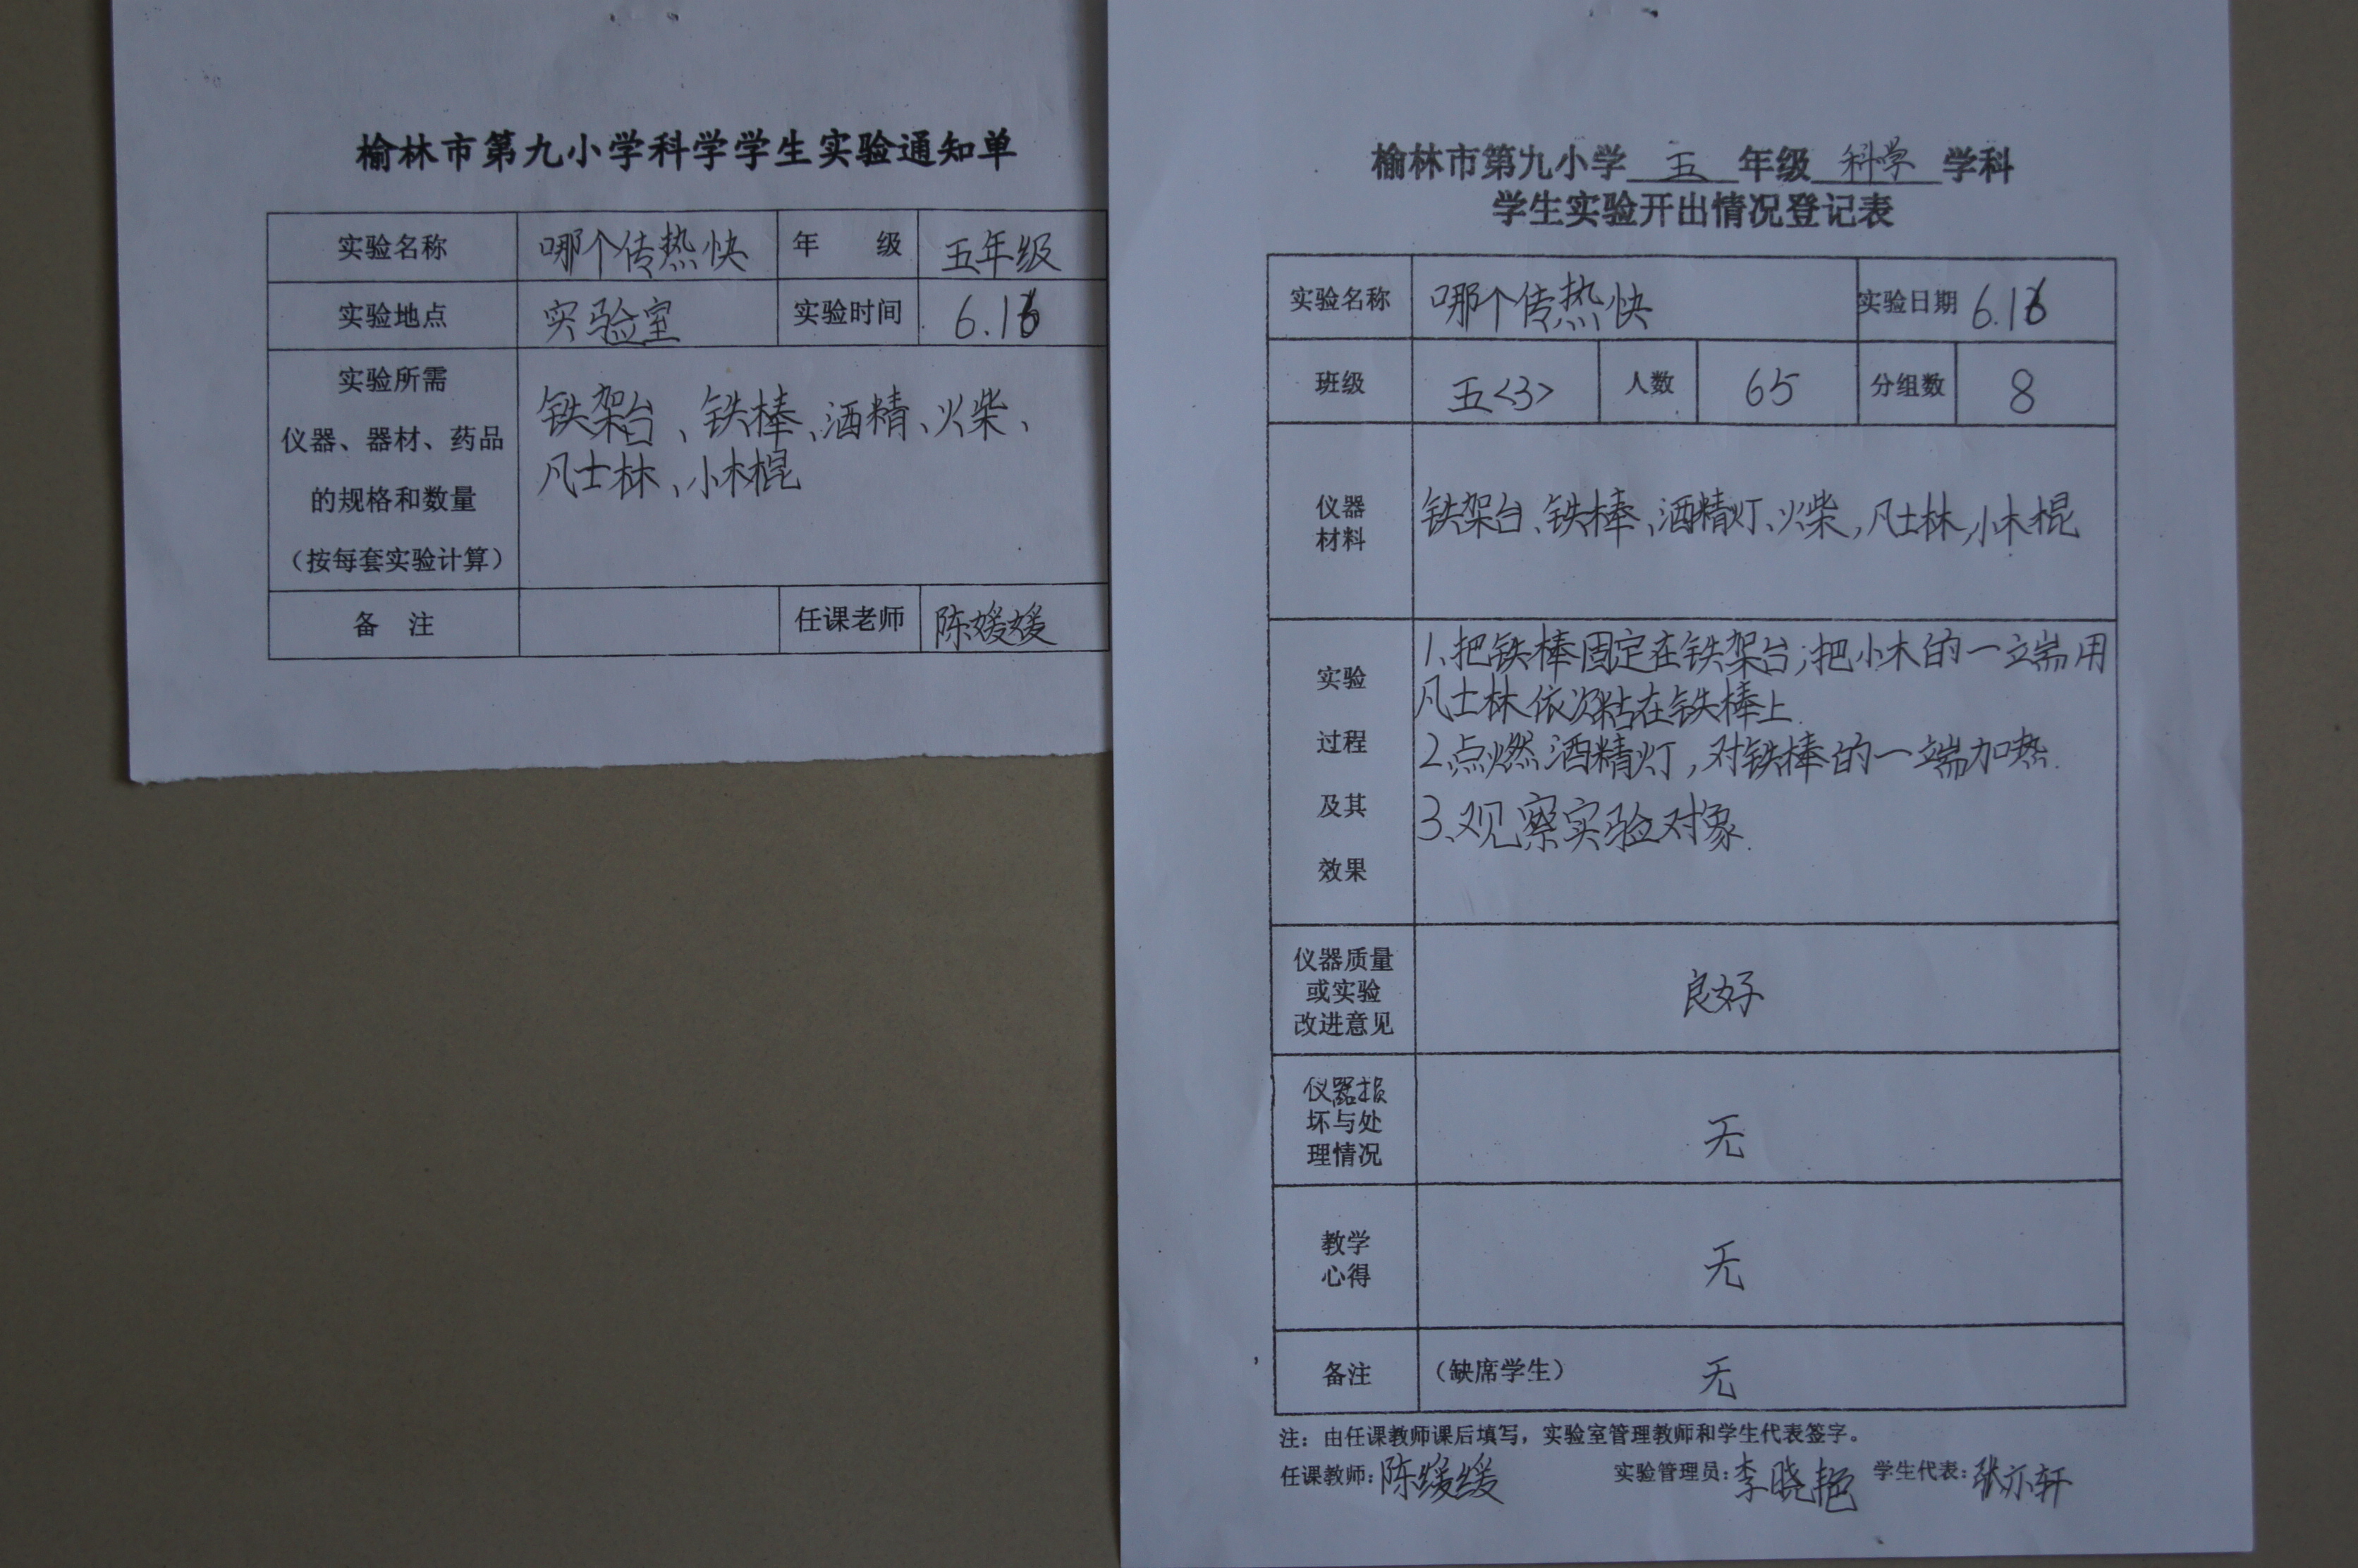 榆林市第九小学科学学生实验通知单
实验名称 哪个传热快 年 级 五年级
实验地点 实验室 实验时间 6.16
实验所需
仪器、器材、药品
的规格和数量
（按每套实验计算）
铁架台、铁棒、酒精、火柴、
凡士林、小木棍
备 注 任课老师 陈媛媛
榆林市第九小学 五 年级 科学 学科
学生实验开出情况登记表
实验名称 哪个传热快 实验日期 6.16
班级 五<3> 人数 65 分组数 8
仪器
材料
铁架台、铁棒、酒精灯、火柴,凡士林,小木棍
实验
过程
及其
效果
1、把铁棒固定在铁架台;把小木的一端用
凡士林依次粘在铁棒上.
2、点燃酒精灯,对铁棒的一端加热.
3、观察实验对象.
仪器质量
或实验
改进意见
良好
仪器损
坏与处
理情况
无
教学
心得
无
备注 （缺席学生） 无
注：由任课教师课后填写，实验室管理教师和学生代表签字。
任课教师:陈媛媛 实验管理员:李晓艳 学生代表:张亦轩